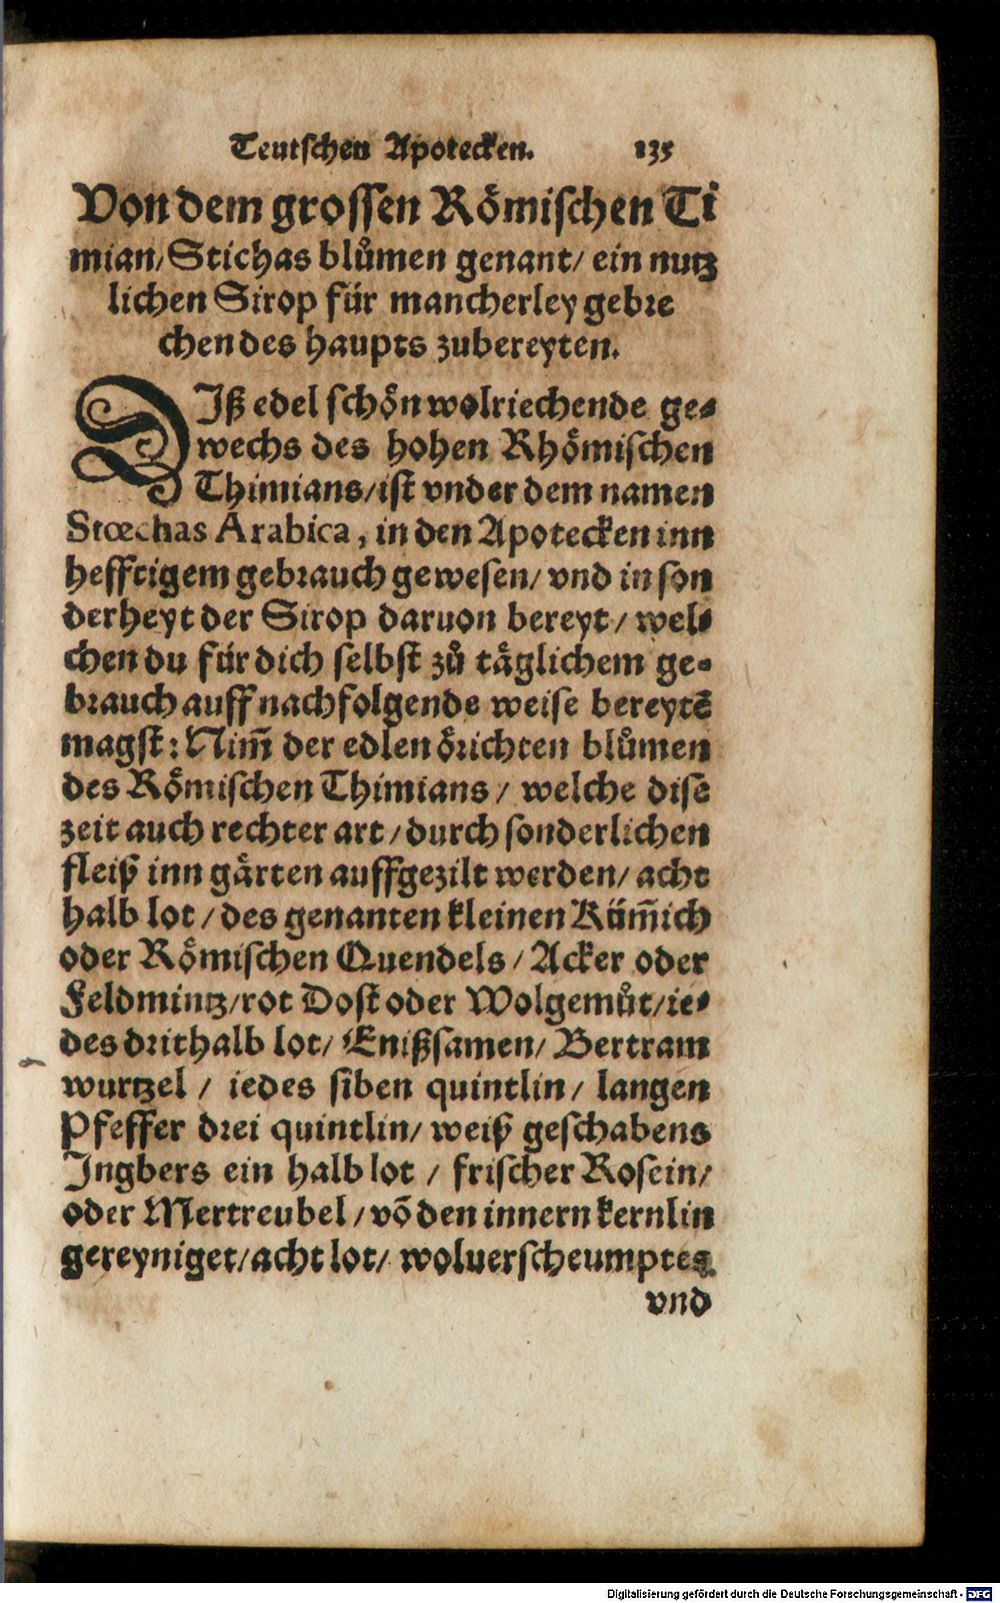 Teutschen Apotecken. 135
Von dem grossen Römischen Ti
mian/ Stichas blůmen genant/ ein nutz
lichen Sirop für mancherley gebre
chen des haupts zubereyten.
DIß edel schön wolriechende ge-
wechs des hohen Rhömischen
Thimians/ ist vnder dem namen
Stœchas Arabica, in den Apotecken inn
hefftigem gebrauch gewesen/ vnd in son
derheyt der Sirop daruon bereyt/ wel-
chen du für dich selbst zů täglichem ge-
brauch auff nachfolgende weise bereytē
magst: Nim̃ der edlen örichten blůmen
des Römischen Thimians/ welche dise
zeit auch rechter art/ durch sonderlichen
fleiß inn gärten auffgezilt werden/ acht
halb lot/ des genanten kleinen Küm̃ich
oder Römischen Quendels/ Acker oder
Feldmintz/ rot Dost oder Wolgemůt/ ie-
des drithalb lot/ Enißsamen/ Bertram
wurtzel/ iedes siben quintlin/ langen
Pfeffer drei quintlin/ weiß geschabens
Ingbers ein halb lot/ frischer Rosein/
oder Mertreubel/ võ den innern kernlin
gereyniget/ acht lot/ woluerscheumptes
vnd
Digitalisierung gefördert durch die Deutsche Forschungsgemeinschaft - DFG